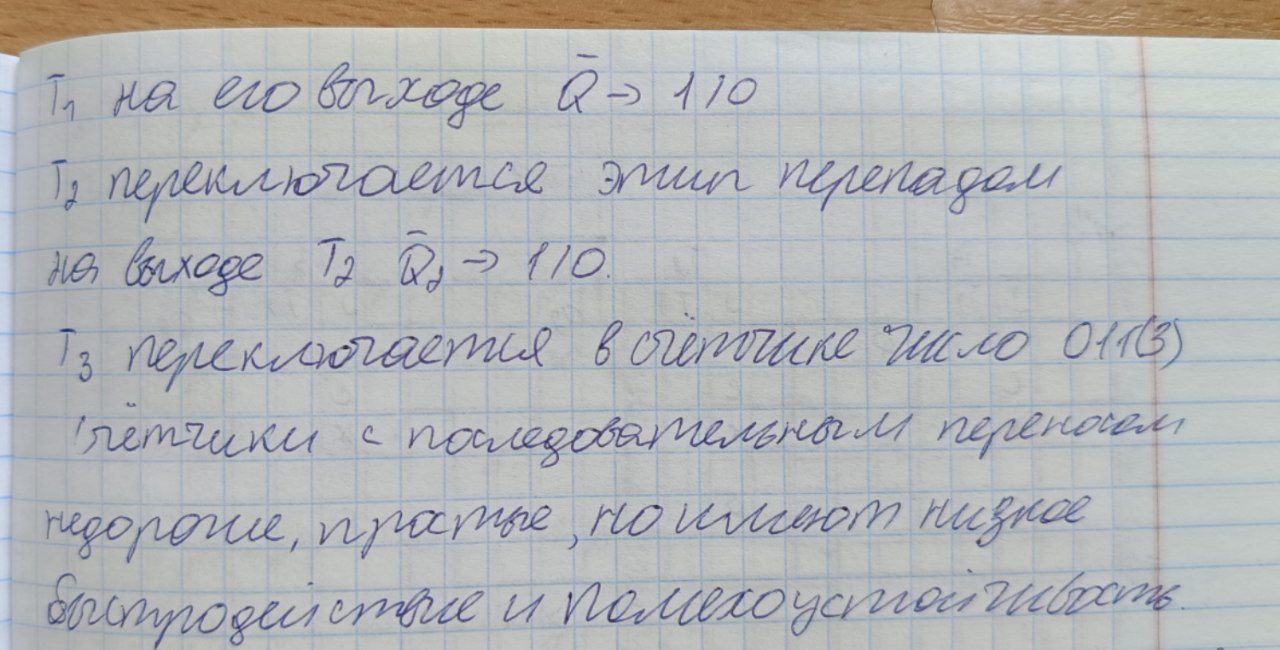 T₁ на его выходе Q̄ → 1/0
T₂ переключается этип перепадом
на выходе T₂ Q̄₂ → 1/0.
T₃ переключается в счётчике число 011(3)
Счётчики с последовательным переносом
недорогие, простые, но имеют низкое
быстродействие и помехоустойчивость.